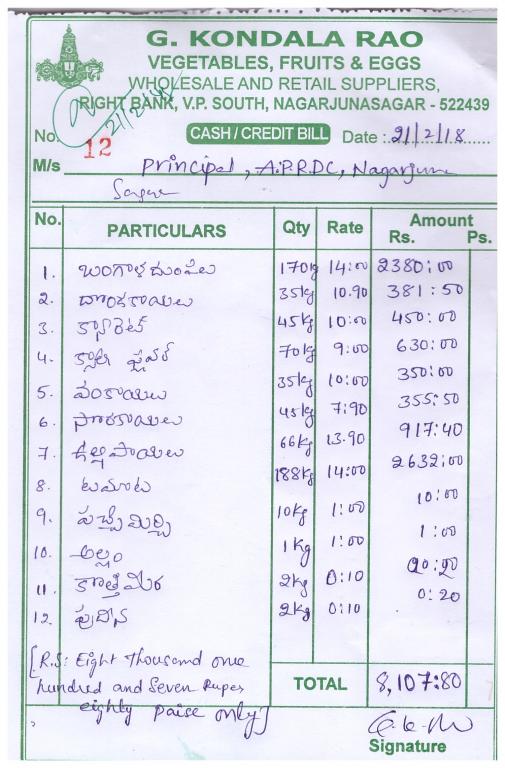 G. KONDALA RAO
VEGETABLES, FRUITS & EGGS
WHOLESALE AND RETAIL SUPPLIERS,
RIGHT BANK, V.P. SOUTH, NAGARJUNASAGAR - 522439
21/2/18
No. 12 CASH / CREDIT BILL Date : 21/2/18
M/s Principal, A.P.R.DC, Nagarjuna
Sagar
No. PARTICULARS Qty Rate Amount Rs. Ps.
1. బంగాళదుంపలు 170kg 14:00 2380:00
2. దొండకాయలు 35kg 10.90 381:50
3. క్యారెట్ 45kg 10:00 450:00
4. క్యాలీ ఫ్లవర్ 70kg 9:00 630:00
5. వంకాయలు 35kg 10:00 350:00
6. సొరకాయలు 45kg 7:90 355:50
7. ఉల్లిపాయలు 66kg 13.90 917:40
8. టమాట 188kg 14:00 2632:00
9. పచ్చిమిర్చి 10kg 1:00 10:00
10. అల్లం 1kg 1:00 1:00
11. కొత్తిమీర 2kg 0:10
12. పుదీన 2kg 0:10 0:20
[R.S: Eight Thousand one
hundred and Seven Rupes
eighty paise only]
TOTAL 8,107:80
Signature